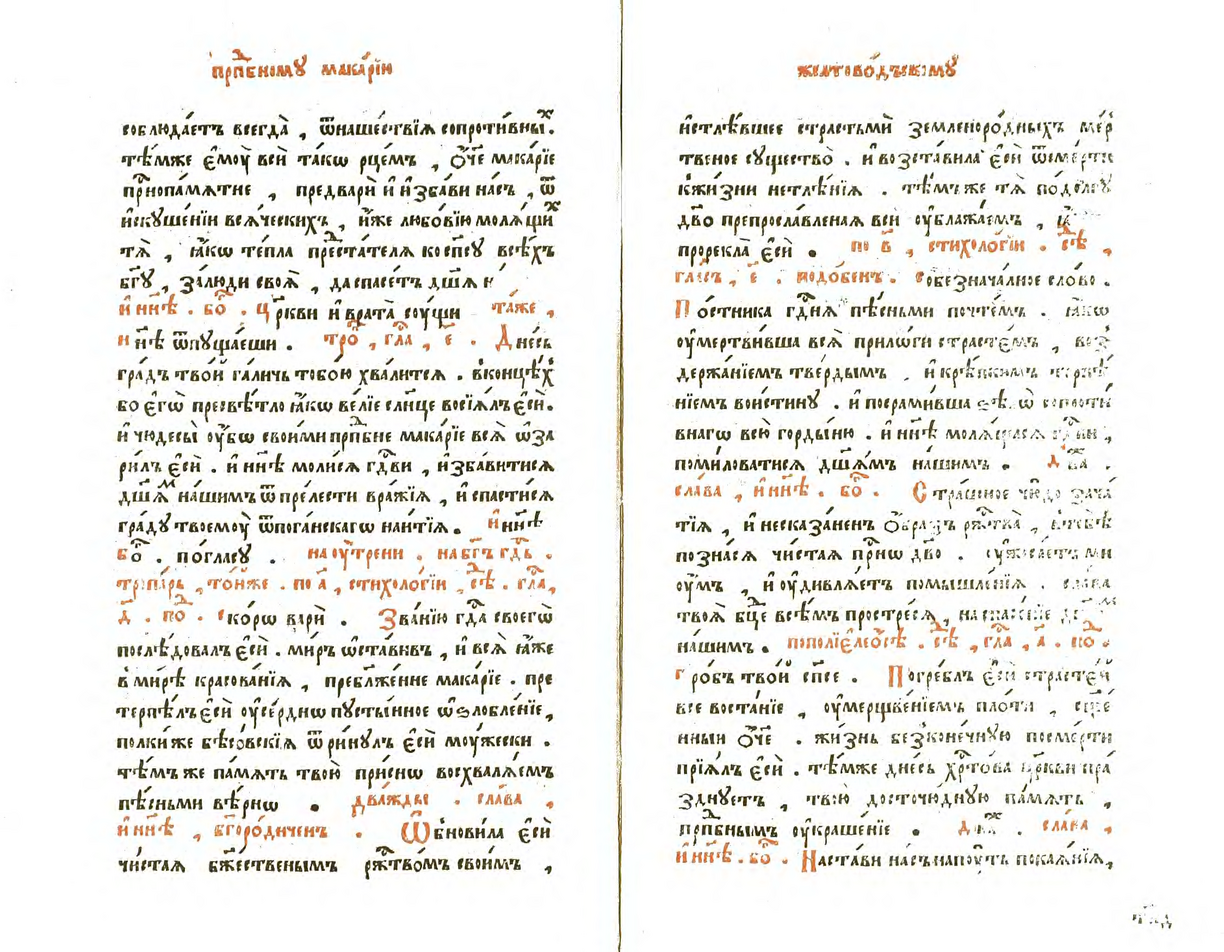 прпⷣбному макарїю
соблюда́етъ всегда̀ , ѿнаше́ствїѧ сопроти́вныⷯ.
тѣ́мже є҆моу̀ всѝ та́кѡ рце́мъ , ѻ҆́ч҃е мака́рїе
прⷭ҇нопа́мѧтне , предварѝ и҆ и҆зба́ви на́съ , ѿ
и҆скꙋше́нїи всѧ́ческихъ , и҆́же любо́вїю молѧ́щиⷯ
тѧ̀ , ꙗ҆́кѡ те́пла преⷣста́телѧ ко сп҃сꙋ всѣ́хъ
бг҃ꙋ , за́люди своѧ̀ , да спасе́тъ дш҃ѧ
и҆ нн҃ѣ . боⷢ . Цр҃кви и҆ врата̀ соу́щи та́же ,
и нн҃ѣ ѿпꙋща́еши . троⷫ , глаⷭ , є҃ . Дне́сь
гра́дъ тво́й га́личь тобо́ю хва́литсѧ . вконцѣ́хⷤ
бо є҆гѡ̀ пресвѣ́тло ꙗ҆́кѡ ве́лїе сл҃нце восїѧ́лъ є҆сѝ.
и҆ чюдесы̀ оу҆́бѡ свои́ми прпⷣбне мака́рїе всѧ̀ ѡ҆за
ри́лъ є҆сѝ . и҆ нн҃ѣ моли́сѧ гдⷭ҇ви , и҆зба́витисѧ
дш҃а́ⷨ на́шимъ ѿ пре́лести вра́жїѧ , и҆ спасти́сѧ
гра́дꙋ твоемоу̀ ѿпога́нскагѡ наи́тїѧ . и҆ нн҃ѣ
боⷢ . по гла́сꙋ . на оу҆́трени . на бг҃ъ гдⷭ҇ь .
тропа́рь , то́йже . по а҃ , стихоло́гїи , сѣⷣ . глаⷭ,
д҃ . поⷣ . ско́рѡ варѝ . Зва́нїю гдⷭ҇а своегѡ̀
послѣ́довалъ є҆сѝ . ми́ръ ѡ҆ста́вивъ , и҆ всѧ̀ ꙗ҆́же
в ми́рѣ красова́нїѧ , пребл҃же́нне мака́рїе . пре
терпѣ́лъ є҆сѝ оу҆се́рднѡ пꙋсты́нное ѡ҆ѕлобле́нїе,
полки́ же бѣсо́вскїѧ ѿри́нꙋлъ є҆сѝ моу́жески .
тѣ́мъ же па́мѧть твою̀ при́снѡ восхвалѧ́емъ
пѣ́сньми вѣ́рнѡ . два́жды . сла́ва ,
и҆ нн҃ѣ , бг҃оро́диченъ . Ѡ҆бнови́ла є҆сѝ
чи́стаѧ бж҃е́ственымъ рж҃тво́мъ свои́мъ ,
желтово́дъскомꙋ
и҆стлѣ́вшее страстьмѝ земленоро́дныхъ ме́р
твеное сꙋщество̀ . и҆ возста́вила є҆сѝ ѿсме́рти
к жи́зни нетлѣ́нїѧ . тѣ́мъ же тѧ̀
дв҃о препросла́вленаѧ всѝ оу҆блажа́емъ ,
прорекла̀ є҆сѝ . по в҃ , стихоло́гїи . сѣⷣ ,
гла́съ , є҃ . подо́бенъ . собезнача́лное сло́во .
По́стника гдⷭ҇нѧ пѣ́сньми почте́мъ . ꙗ҆́кѡ
оу҆мертви́вша всѧ̀ прило́ги страсте́мъ , воз
держа́нїемъ тве́рдымъ , и҆ крѣ́пкимъ терпѣ́
нїемъ вои́стинꙋ . и҆ посрами́вша ѕѣлѡ̀ сопроти́
внагѡ всю̀ горды́ню . и҆ нн҃ѣ молѧ́щасѧ гдⷭ҇ви ,
поми́ловатисѧ дш҃а́мъ на́шимъ . два .
сла́ва , и҆ нн҃ѣ . боⷢ . Стра́шное чю́до зача́
тїѧ , и҆ несказа́ненъ ѻ҆́бразъ рж҃тва̀ , в тебѣ̀
позна́сѧ чи́стаѧ прⷭ҇нѡ дв҃о . оу҆жаса́етъ ми
оу҆́мъ , и҆ оу҆дивлѧ́етъ помышле́нїѧ . сла́ва
твоѧ̀ бц҃е всѣ́мъ простре́сѧ , на спасе́нїе
на́шимъ . по полїеле́осѣ . сѣⷣ , глаⷭ , а҃ . поⷣ .
гро́бъ тво́й сп҃се . Погре́блъ є҆сѝ страсте́й
все воста́нїе , оу҆мерщве́нїемъ пло́ти , сщ҃е
нныи ѻ҆́ч҃е . жи́знь безконе́чнꙋю посме́рти
прїѧ́лъ є҆сѝ . тѣ́мже дне́сь хрⷭ҇то́ва цр҃кви пра
зднꙋетъ , твою̀ досточю́днꙋю па́мѧть ,
прпⷣбнымъ оу҆краше́нїе . сла́ва ,
и҆ нн҃ѣ . боⷢ . Наста́ви на́съ напоу́ть покаѧ́нїѧ,